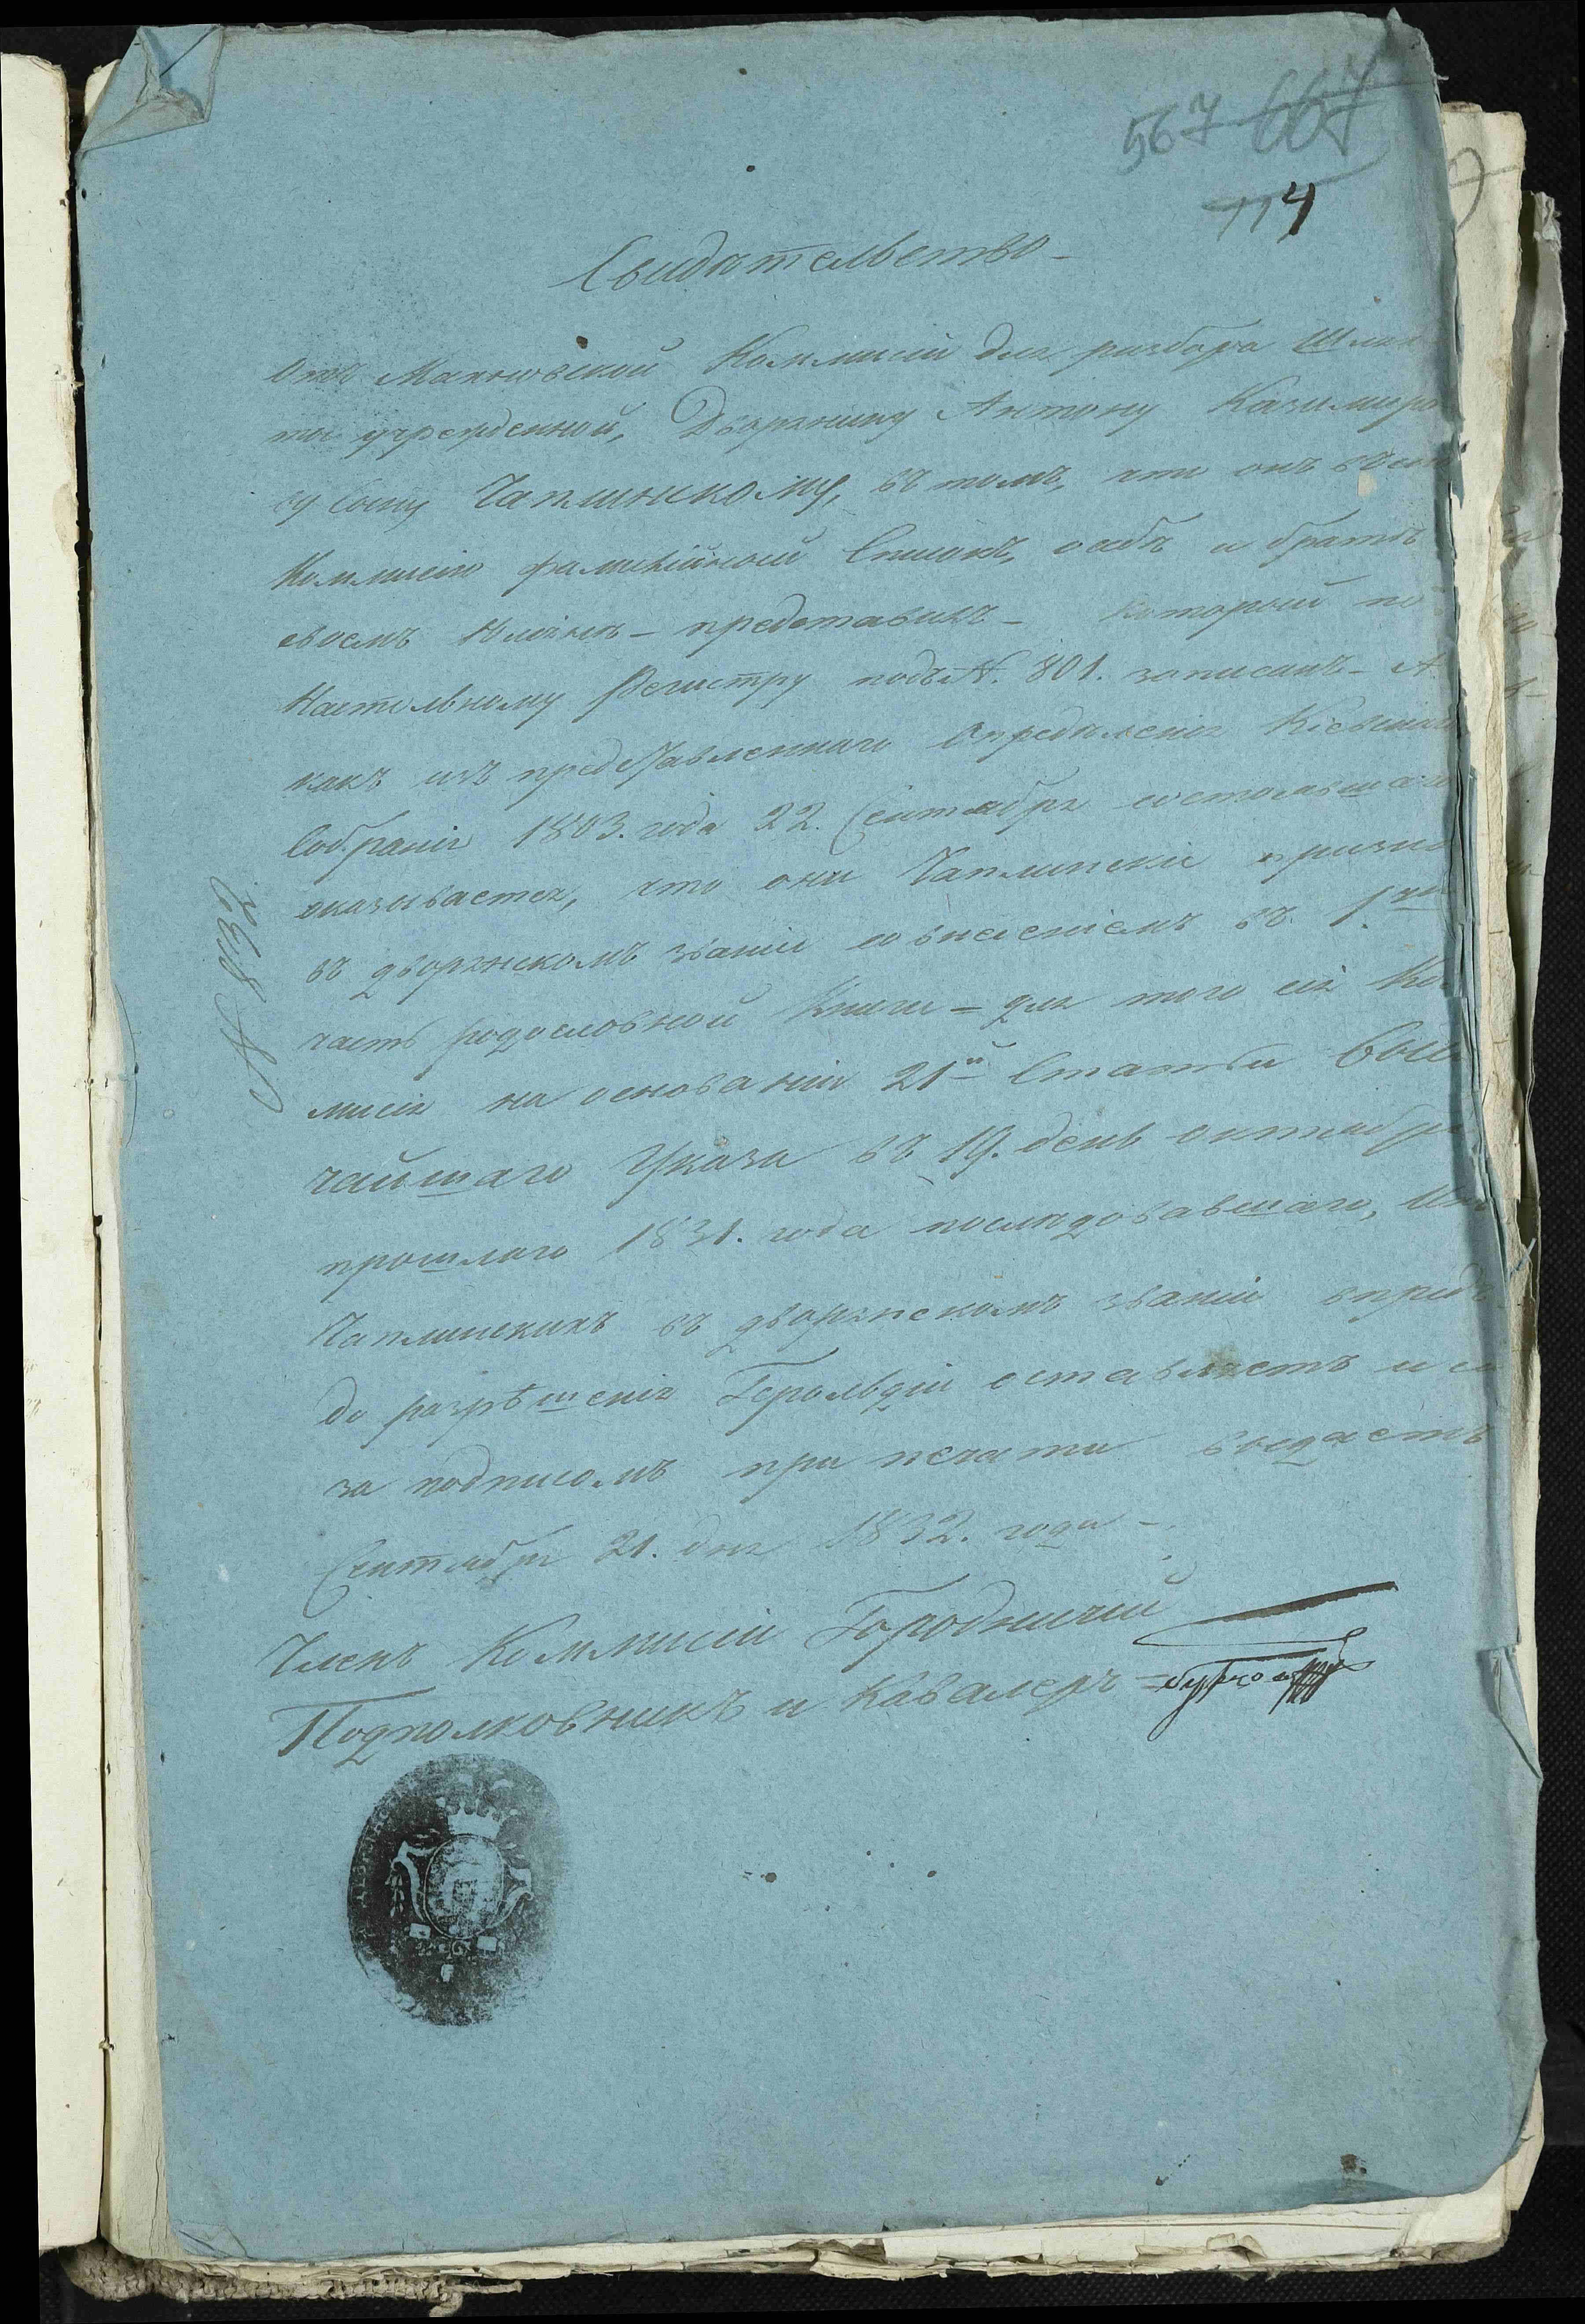 567 667
114
Свидѣтельство
Отъ Махновской Коммисіи для разбора Шлях
ты учрежденной, Дворянину Антону Казимира
Сыну Чаплинскому, въ томъ, что онъ въ сію
Коммисію фамилійной Списокъ, о себѣ и братѣ
своемъ представилъ - который по
Настольному Регистру подъ №. 801. записанъ - А
какъ изъ представленнаго Опредѣленія Кіевскаго
Собранія 1803. года 22. Сентября состоявшагося
оказывается, что они Чаплинскіе призна
въ дворянскомъ званіи со внесеніемъ въ 1.ую
часть родословной Книги = для того сія Ком
мисія на основаніи 21й Статьи Высо
чайшаго Указа въ 19. день октября
прошлаго 1831. года послѣдовавшаго, Ихъ
Чаплинскихъ въ дворянскомъ званіи впредь
до разрѣшенія Герольдіи оставляетъ и сіе
за подписомъ при печати выдаетъ
Сентября 21. дня 1832. года -
Членъ Коммисіи Городничій
Подполковникъ и Кавалеръ =
№ 839